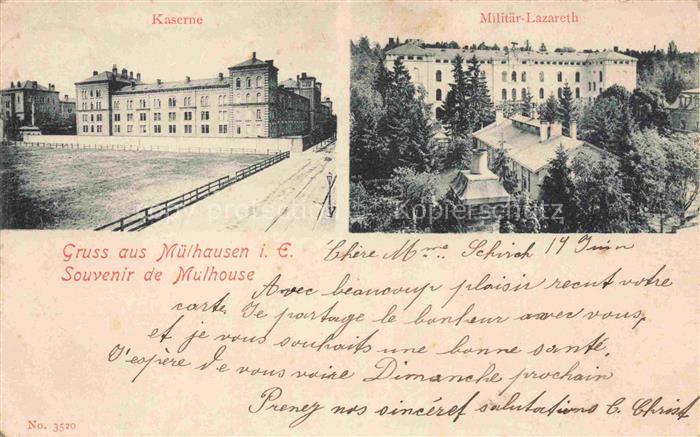 Kaserne
Militär-Lazareth
Copy protection
Kartenplanet Schwarz
Gruss aus Mülhausen i. E.
Souvenir de Mulhouse
Chère Mme. Schirch 19 Juin
Avec beaucoup plaisir recut votre
carte. Je partage le bonheur avec vous,
et je vous souhaits une bonne santé.
J'espère de vous voire Dimanche prochain
Prenez nos sincéref salutations C. Christ
No. 3520